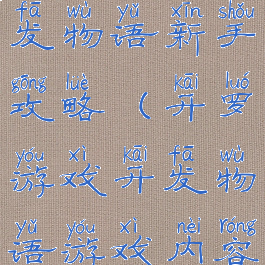 fā wù yǔ xīn shǒu
发物语新手
gōng lüè kāi luó
攻略（开罗
yóu xì kāi fā wù
游戏开发物
yǔ yóu xì nèi róng
语游戏内容